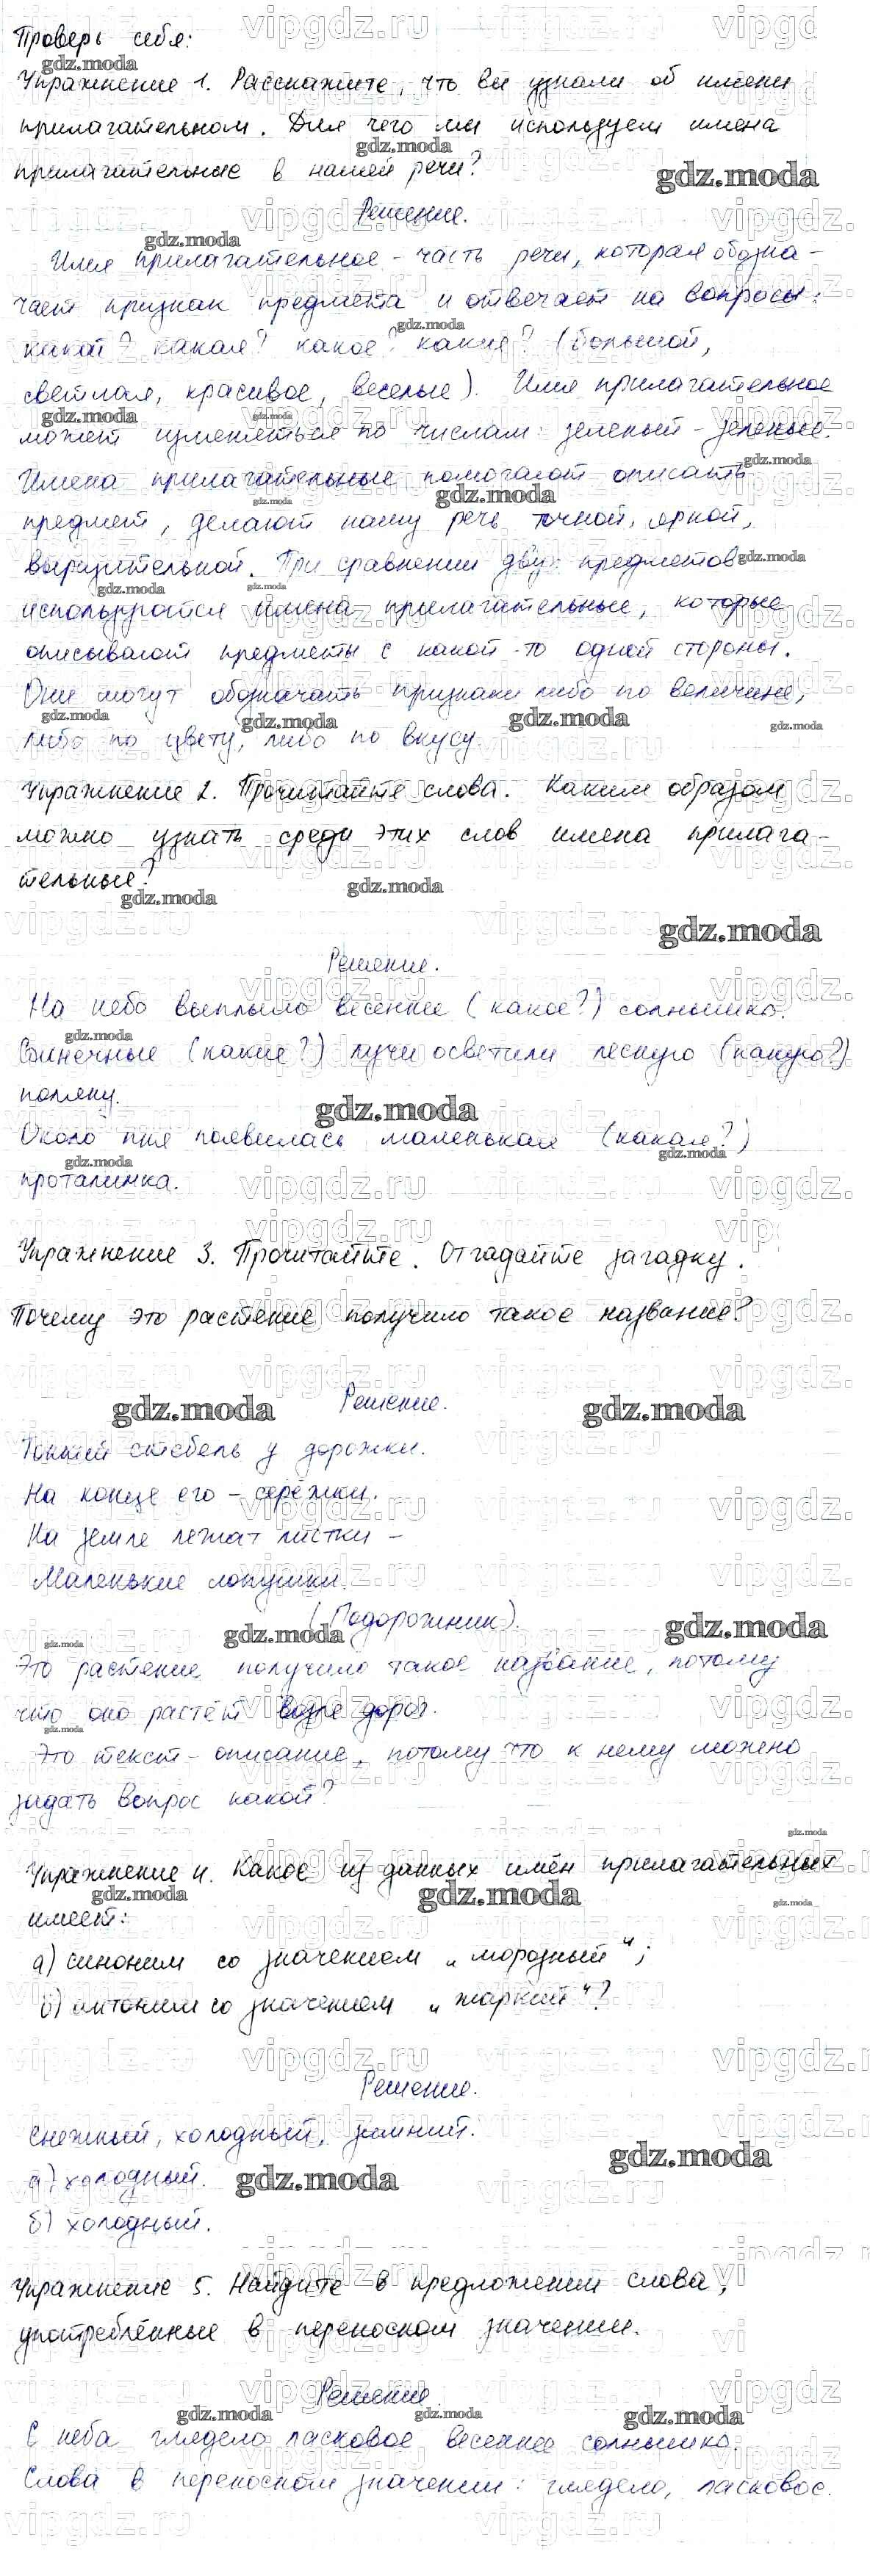 Проверь себя:
Упражнение 1. Расскажите, что вы узнали об имени
прилагательном. Для чего мы используем имена
прилагательные в нашей речи?
Решение.
Имя прилагательное - часть речи, которая обозна-
чает признак предмета и отвечает на вопросы:
какой? какая? какое? какие? (большой,
светлая, красивое, веселые). Имя прилагательное
может изменяться по числам: зеленый - зеленые.
Имена прилагательные помогают описать
предмет, делают нашу речь точной, яркой,
выразительной. При сравнении двух предметов
используются имена прилагательные, которые
описывают предметы с какой-то одной стороны.
Они могут обозначать признаки либо по величине,
либо по цвету, либо по вкусу
Упражнение 2. Прочитайте слова. Каким образом
можно узнать среди этих слов имена прилага-
тельные?
Решение.
На небо выплыло весенне (какое?) солнышко.
Солнечные (какие?) лучи осветили лесную (какую?)
поляну.
Около пня появилась маленькая (какая?)
проталинка.
Упражнение 3. Прочитайте. Отгадайте загадку.
Почему это растение получило такое название?
Решение.
Тонкий стебель у дорожки.
На конце его - серёжки.
На земле лежат листки -
Маленькие лопушки.
(Подорожник).
Это растение получило такое название, потому
что оно растёт возле дорог.
Это текст - описание, потому что к нему можно
задать вопрос какой?
Упражнение 4. Какое из данных имён прилагательных
имеет:
а) синоним со значением „морозный“;
б) антоним со значением „жаркий“?
Решение.
Снежный, холодный, зимний.
а) холодный.
б) холодный.
Упражнение 5. Найдите в предложении слова,
употреблённые в переносном значении.
Решение
С неба глядело ласковое весеннее солнышко.
Слова в переносном значении: глядело, ласковое.